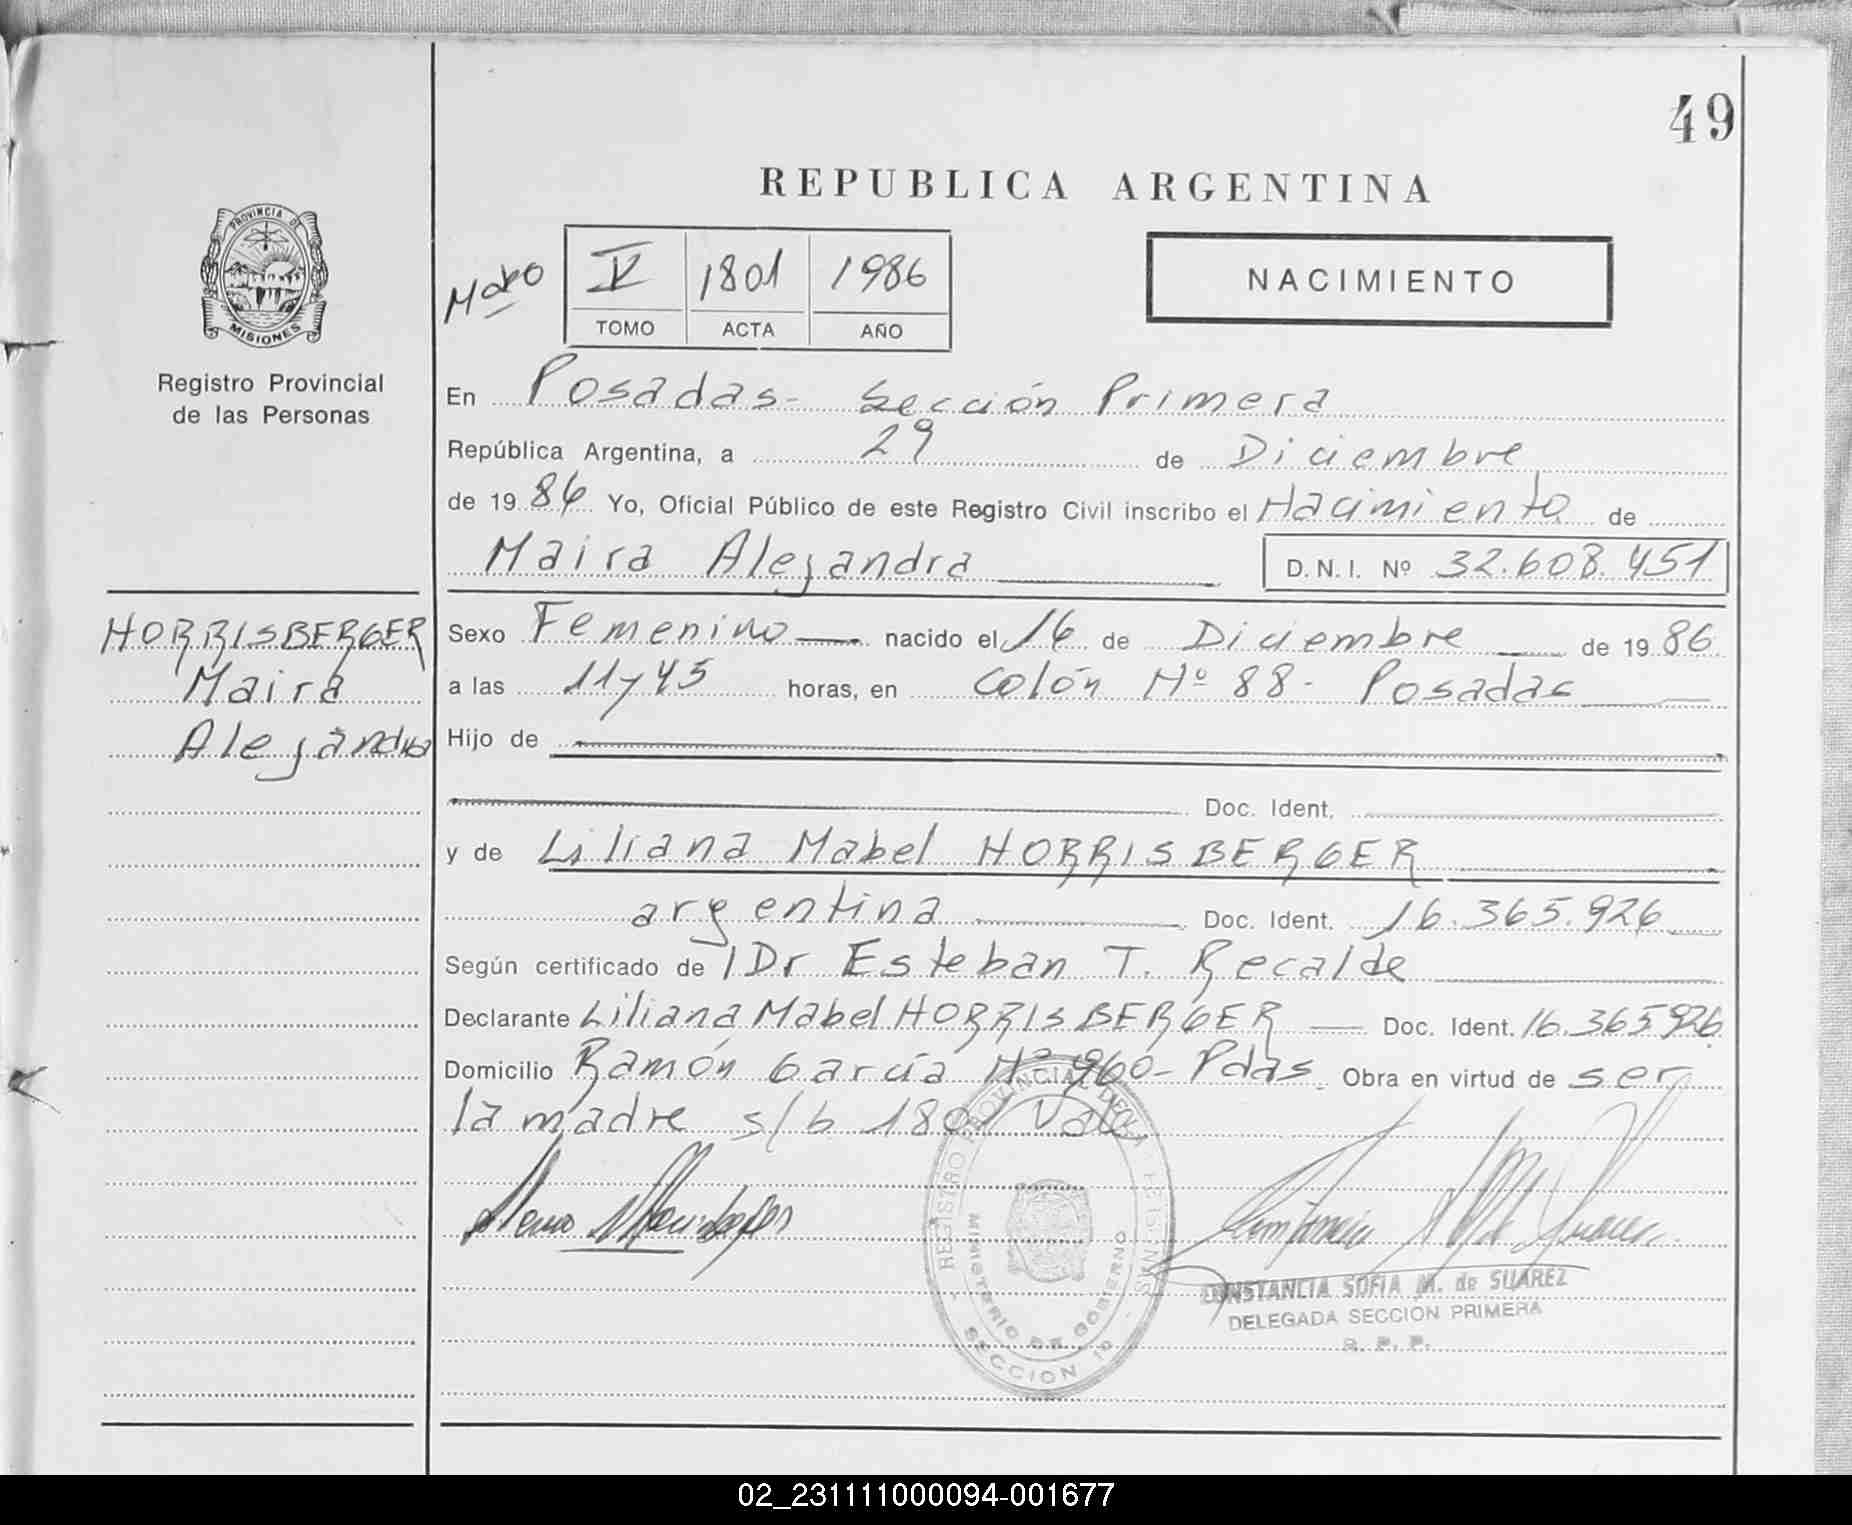 49
REPUBLICA ARGENTINA
PROVINCIA DE
MISIONES
Registro Provincial
de las Personas
V 1801 1986
TOMO ACTA AÑO
NACIMIENTO
En Posadas- Sección Primera
República Argentina, a 29 de Diciembre
de 1986 Yo, Oficial Público de este Registro Civil inscribo el Nacimiento de
Maira Alejandra D.N.I. Nº 32.608.451
HORRISBERGER
Maira
Alejandra
Sexo Femenino nacido el 16 de Diciembre de 1986
a las 11y45 horas, en Colón Nº 88- Posadas
Hijo de
Doc. Ident.
y de Liliana Mabel HORRISBERGER
argentina Doc. Ident. 16.365.926
Según certificado de Dr Esteban T. Recalde
Declarante Liliana Mabel HORRISBERGER Doc. Ident. 16.365926
Domicilio Ramón García Nº 960- Pdas. Obra en virtud de ser
la madre s/b 1801 Vale
REGISTRO PROVINCIAL DE LAS PERSONAS
MINISTERIO DE GOBIERNO
SECCION 1º
CONSTANCIA SOFIA M. de SUAREZ
DELEGADA SECCION PRIMERA
R. P. P.
02_231111000094-001677